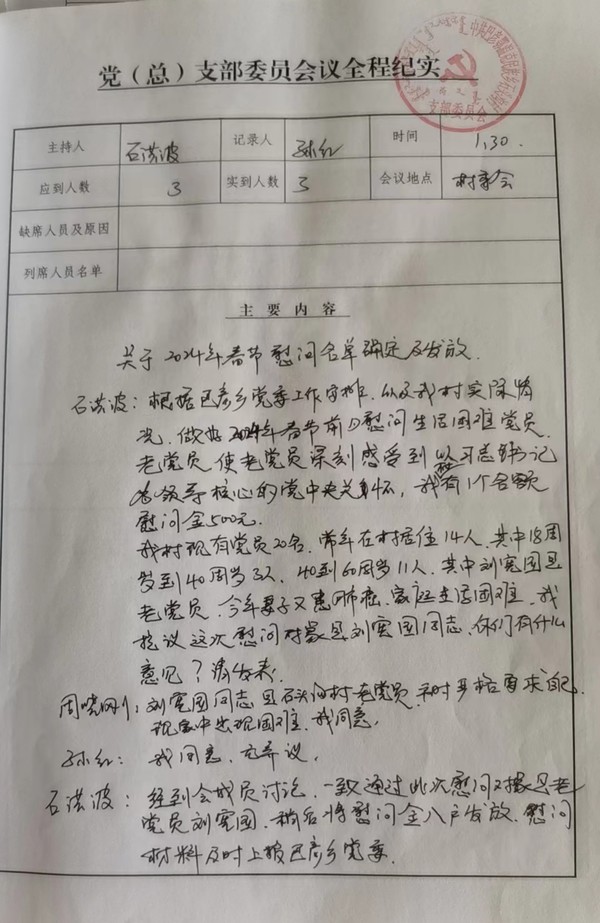 党（总）支部委员会议全程纪实
支部委员会
主持人 石洪波 记录人 孙红 时间 1.30.
应到人数 3 实到人数 3 会议地点 村委会
缺席人员及原因
列席人员名单
主要内容
关于2024年春节慰问名单确定及发放.
石洪波：根据巴彦乡党委工作安排，以及我村实际情
况，做好2024年春节前夕慰问生活困难党员、
老党员，使老党员深刻感受到以习总书记
为领导核心的党中央关怀，我村有1个名额
慰问金500元.
我村现有党员20名，常年在村居住14人，其中18周
岁到40周岁3人，40到60周岁11人，其中刘宪国是
老党员，今年妻子又患肺癌，家庭生活困难，我
提议这次慰问对象是刘宪国同志，你们有什么
意见？请发表.
周晓刚：刘宪国同志是石头沟村老党员，平时严格要求自己，
现家中出现困难，我同意.
孙红：我同意，无异议.
石洪波：经到会成员讨论，一致通过此次慰问对象是老
党员刘宪国，稍后将慰问金入户发放，慰问
材料及时上报巴彦乡党委.